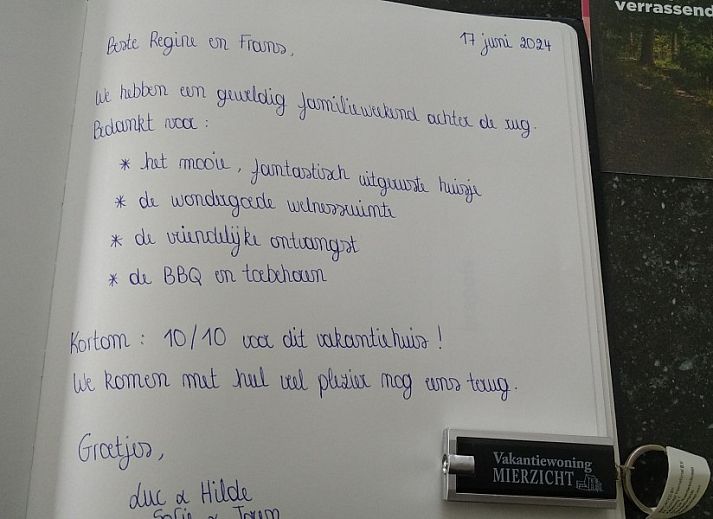 17 juni 2024
Beste Regine en Frans,
We hebben een geweldig familieweekend achter de rug.
Bedankt voor :
* het mooie, fantastisch uitgeruste huisje
* de wondergoede welnessruimte
* de vriendelijke ontvangst
* de BBQ en toebehoren
Kortom : 10/10 voor dit vakantiehuis !
We komen met heel veel plezier nog eens terug.
Groetjes,
Luc & Hilde
Sofie & Joren
verrassend
Vakantiewoning
MIERZICHT